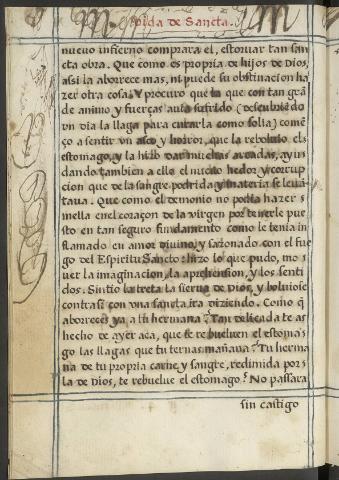 Vida de Sancta.
nueuo infierno comparara el, estoruar tan san
cta obra. Que como es propria de hijos de Dios,
assi la aborrece mas, ni puede su obstinacion ha
zer otra cosa. Y procuro que la que con tan grã
de animo y fuerças auia sufrido (descubriẽdo
vn dia la llaga para curarla como solia) comẽ
ço a sentir vn asco y horror, que la reboluio el
estomago, y la hizo dar muchas arcadas, ayu
dando tambien a ello el mucho hedor y corrup
cion que de la sangre podrida y materia se leuã
taua. Que como el demonio no podia hazer
mella en el coraçon de la virgen por tenerle pue
sto en tan seguro fundamento como le tenia in
flamado en amor diuino, y sazonado con el fue
go del Espiritu Sancto: hizo lo que pudo, mo
uer la imaginacion, la aprehension, y los senti
dos. Sintio la treta la sierua de Dios, y boluiose
contra si con vna sancta ira diziendo. Como q̃
aborreces ya a tu hermana? Tan delicada te as
hecho de ayer aca, que se te rebueluen el estoma
go las llagas que tu ternas mañana? Tu herma
na de tu propria carne y sangre, redimida por
la de Dios, te rebuelue el estomago? No passara
sin castigo